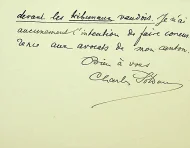 devant les tribunaux vaudois. Je n'ai
aucunement l'intention de faire concur
rence aux avocats de mon canton.
Bien à vous
Charles